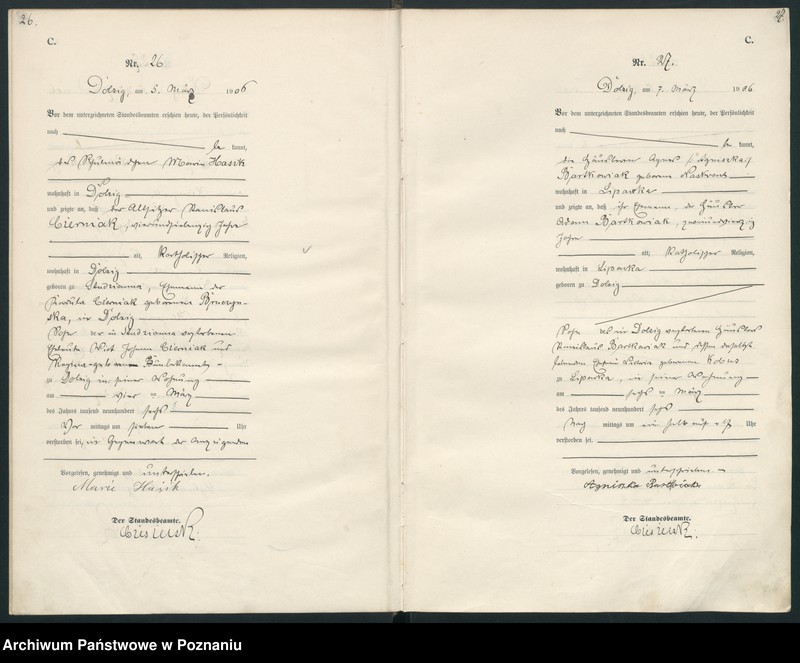 26.
C.
Nr. 26
Dolzig, am 5. März 1906
Vor dem unterzeichneten Standesbeamten erschien heute, der Persönlichkeit
nach
be kannt,
Marie Hasik
wohnhaft in Dolzig
und zeigte an, daß der Altsitzer Stanislaus
Cierniak, vierundsiebenzig Jahre
alt, katholischer Religion,
wohnhaft in Dolzig
geboren zu Ehemann der
Cierniak geborenen
in Dolzig
Sohn der in verstorbenen
Eheleute Wirt Johann Cierniak und
Regina geborene
zu Dolzig in seiner Wohnung
am vier ten März
des Jahres tausend neunhundert sechs
Vor mittags um sieben Uhr
verstorben sei, in Gegenwart der Anzeigenden
Vorgelesen, genehmigt und unterschrieben.
Marie Hasik
Der Standesbeamte.
27
C.
Nr. 27.
Dolzig, am 7. März 1906
Vor dem unterzeichneten Standesbeamten erschien heute, der Persönlichkeit
nach
be kannt,
die Häuslerin Agnes (Agnieszka)
Bartkowiak geborene
wohnhaft in Lipowka
und zeigte an, daß ihr Ehemann, der Häusler
Adam Bartkowiak, zweiundvierzig
Jahre
alt, katholischer Religion,
wohnhaft in Lipowka
geboren zu Dolzig
Sohn des in Dolzig verstorbenen Häuslers
Stanislaus Bartkowiak und dessen daselbst
geborene
zu Lipowka, in seiner Wohnung
am sechs ten März
des Jahres tausend neunhundert sechs
Nach mittags um ein halb Uhr
verstorben sei.
Vorgelesen, genehmigt und unterschrieben
Agniszka Bartkowiak
Der Standesbeamte.
Archiwum Państwowe w Poznaniu